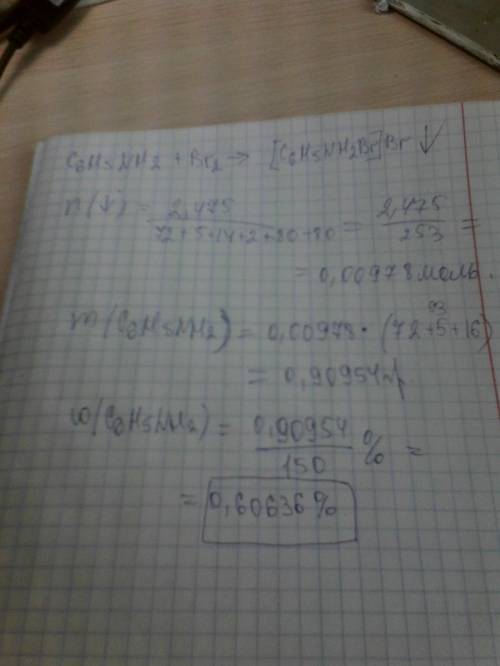 C6H5NH2 + Br2 → [C6H5NH2Br]Br↓
n(↓) = 2,475 / 72+5+14+2+80+80 = 2,475 / 253 =
= 0,00978 моль.
93
m(C6H5NH2) = 0,00978 · (72+5+16)
= 0,90954 гр
ω(C6H5NH2) = 0,90954 / 150 % =
= 0,60636 %